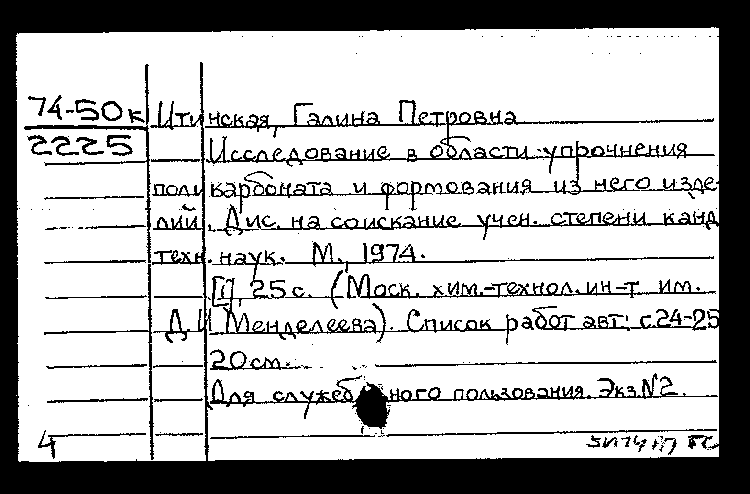 74-50к Итинская, Галина Петровна
2225 Исследование в области упрочнения
поликарбоната и формования из него изде-
лий. Дис. на соискание учен. степени канд
техн. наук. М., 1974.
[1], 25 с. (Моск. хим.-технол. ин-т им.
Д.И. Менделеева). Список работ авт: с.24-25
20 см.
Для служебного пользования. Экз.№2.
4